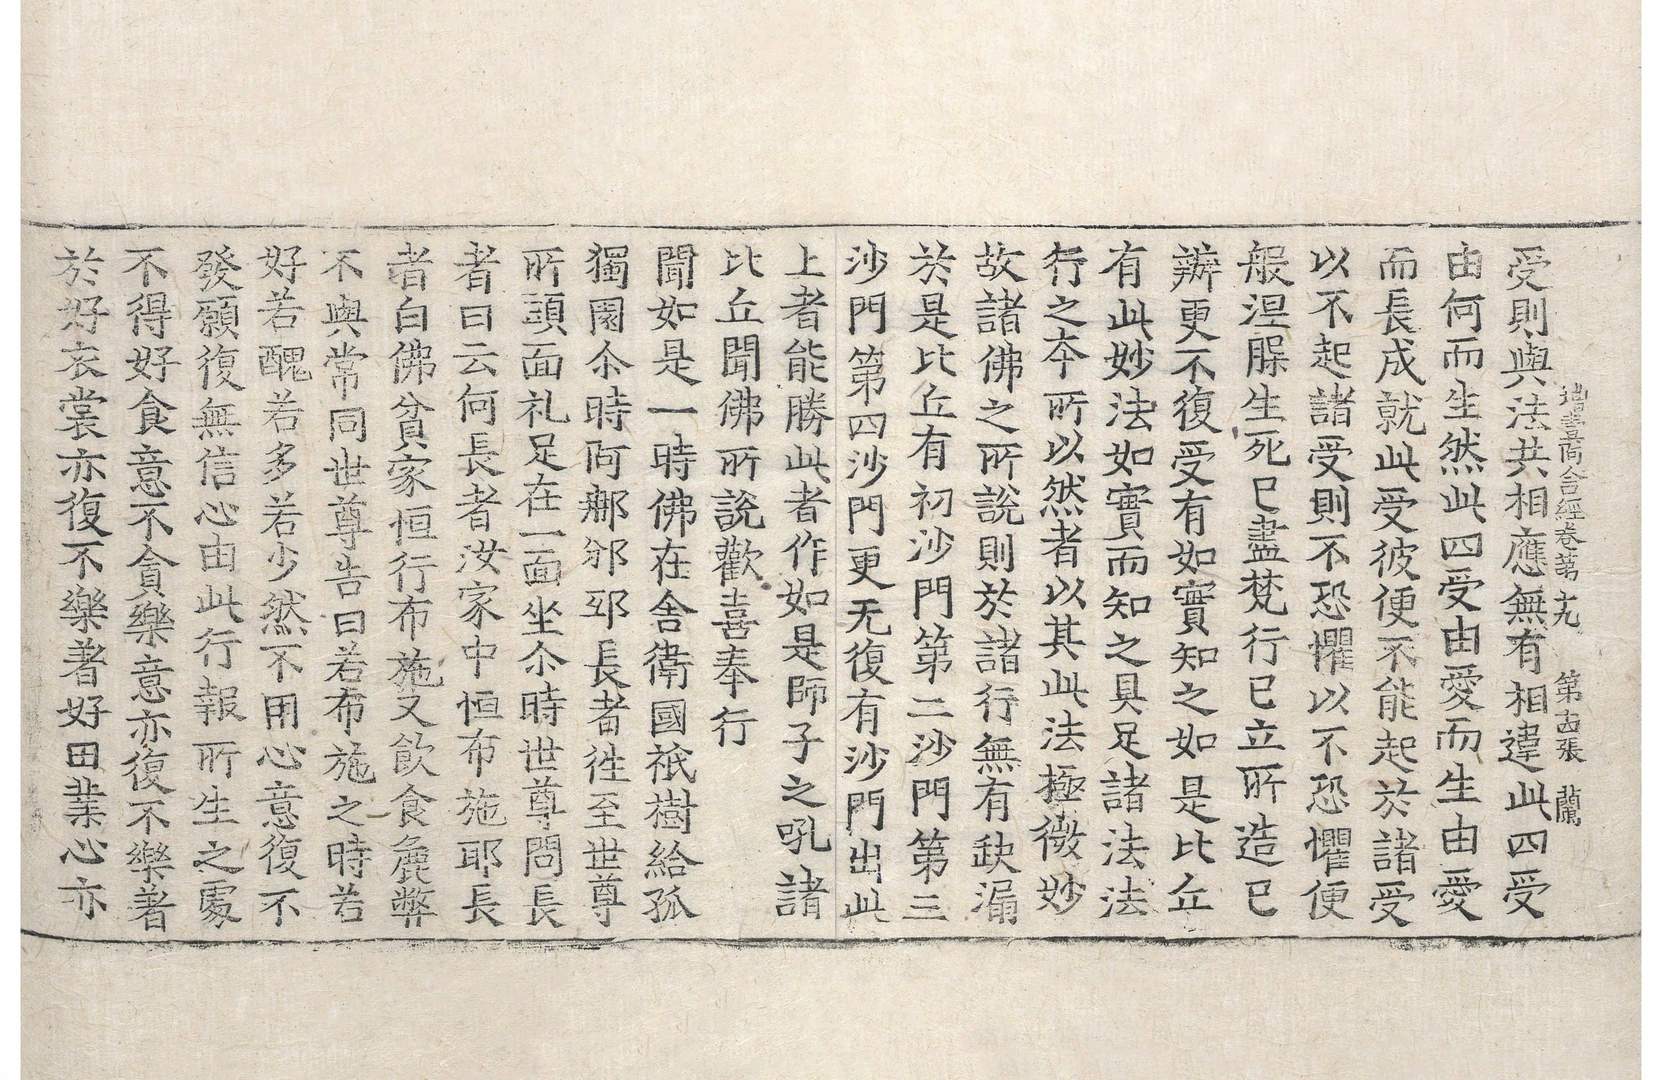 增壹阿含經卷第十九　第十四張　蘭
受則與法共相應無有相違此四受
由何而生然此四受由愛而生由愛
而長成就此受彼便不能起於諸受
以不起諸受則不恐懼以不恐懼便
般涅槃生死已盡梵行已立所造已
辦更不復受有如實知之如是比丘
有此妙法如實而知之具足諸法法
行之本所以然者以其此法極微妙
故諸佛之所說則於諸行無有缺漏
於是比丘有初沙門第二沙門第三
沙門第四沙門更无復有沙門出此
上者能勝此者作如是師子之吼諸
比丘聞佛所說歡喜奉行
聞如是一時佛在舍衛國祇樹給孤
獨園尒時阿𨚗邠邸長者往至世尊
所頭面礼足在一面坐尒時世尊問長
者曰云何長者汝家中恒布施耶長
者白佛貧家恒行布施又飲食麁弊
不與常同世尊告曰若布施之時若
好若醜若多若少然不用心意復不
發願復無信心由此行報所生之處
不得好食意不貪樂意亦復不樂著
於好衣裳亦復不樂著好田業心亦